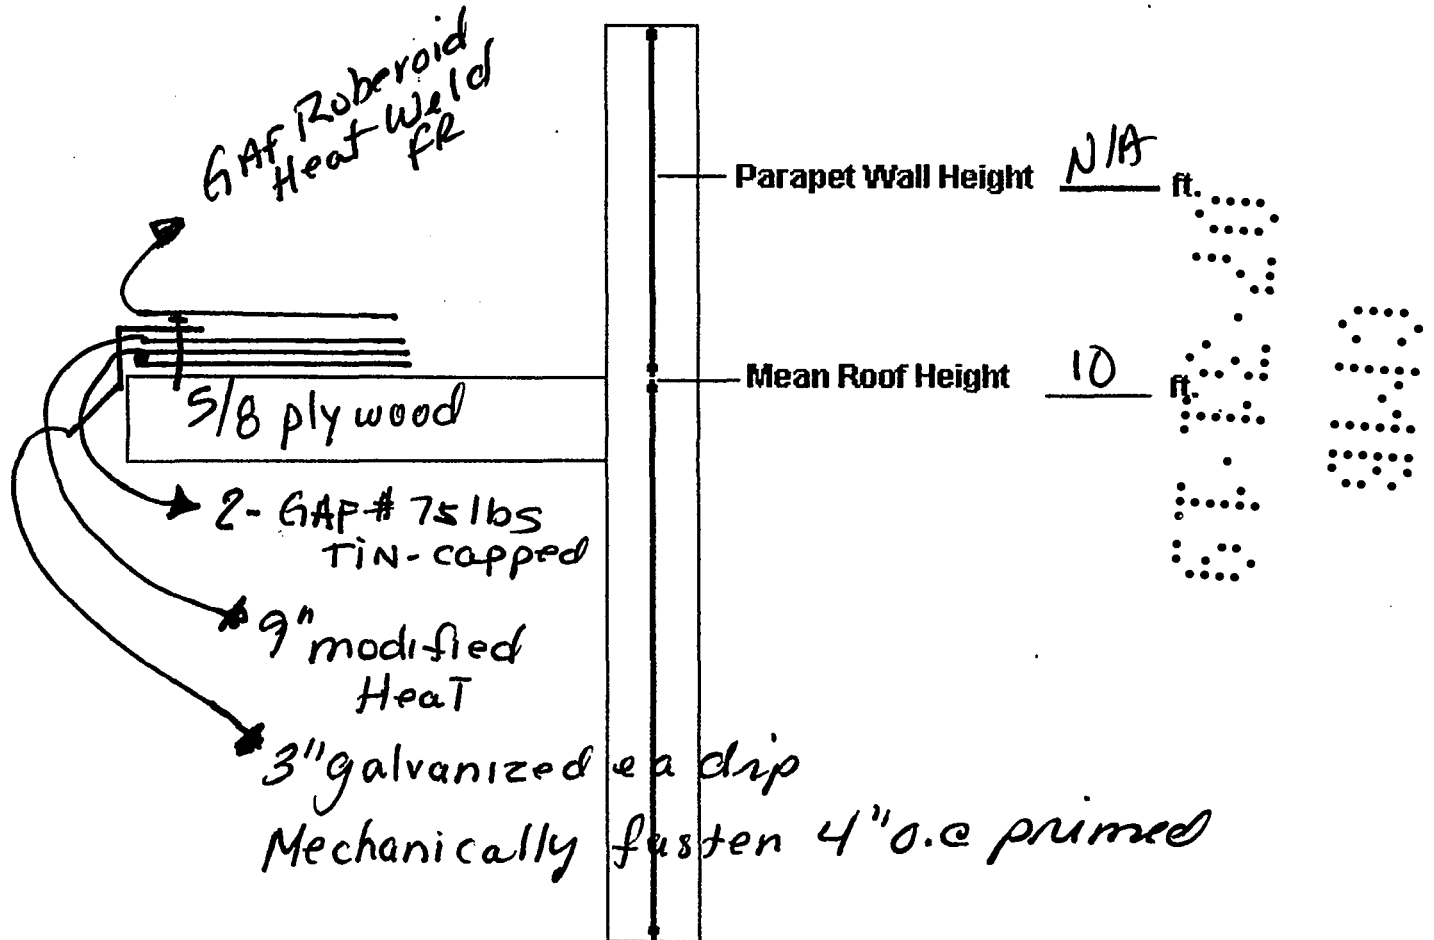 GAF Roberoid
Heat Weld
FR
Parapet Wall Height N/A ft.
Mean Roof Height 10 ft.
5/8 plywood
2- GAF# 75 lbs
TiN-capped
9" modified
HeaT
3" galvanized ea drip
Mechanically fasten 4" o.c primed